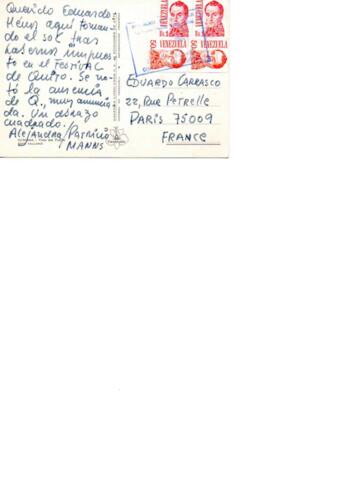 Querido Eduardo:
Henos aquí toman-
do el sol tras
habernos impues-
to en el FESTIVAL
de Quito. Se no-
tó la ausencia
de Q., muy anuncia-
da. Un abrazo
cuadrado.
Alejandra/Patricio
MANNS
VENEZUELA
VENEZUELA
50
50
EDUARDO CARRASCO
22, Rue PETRELLE
PARIS 75009
FRANCE